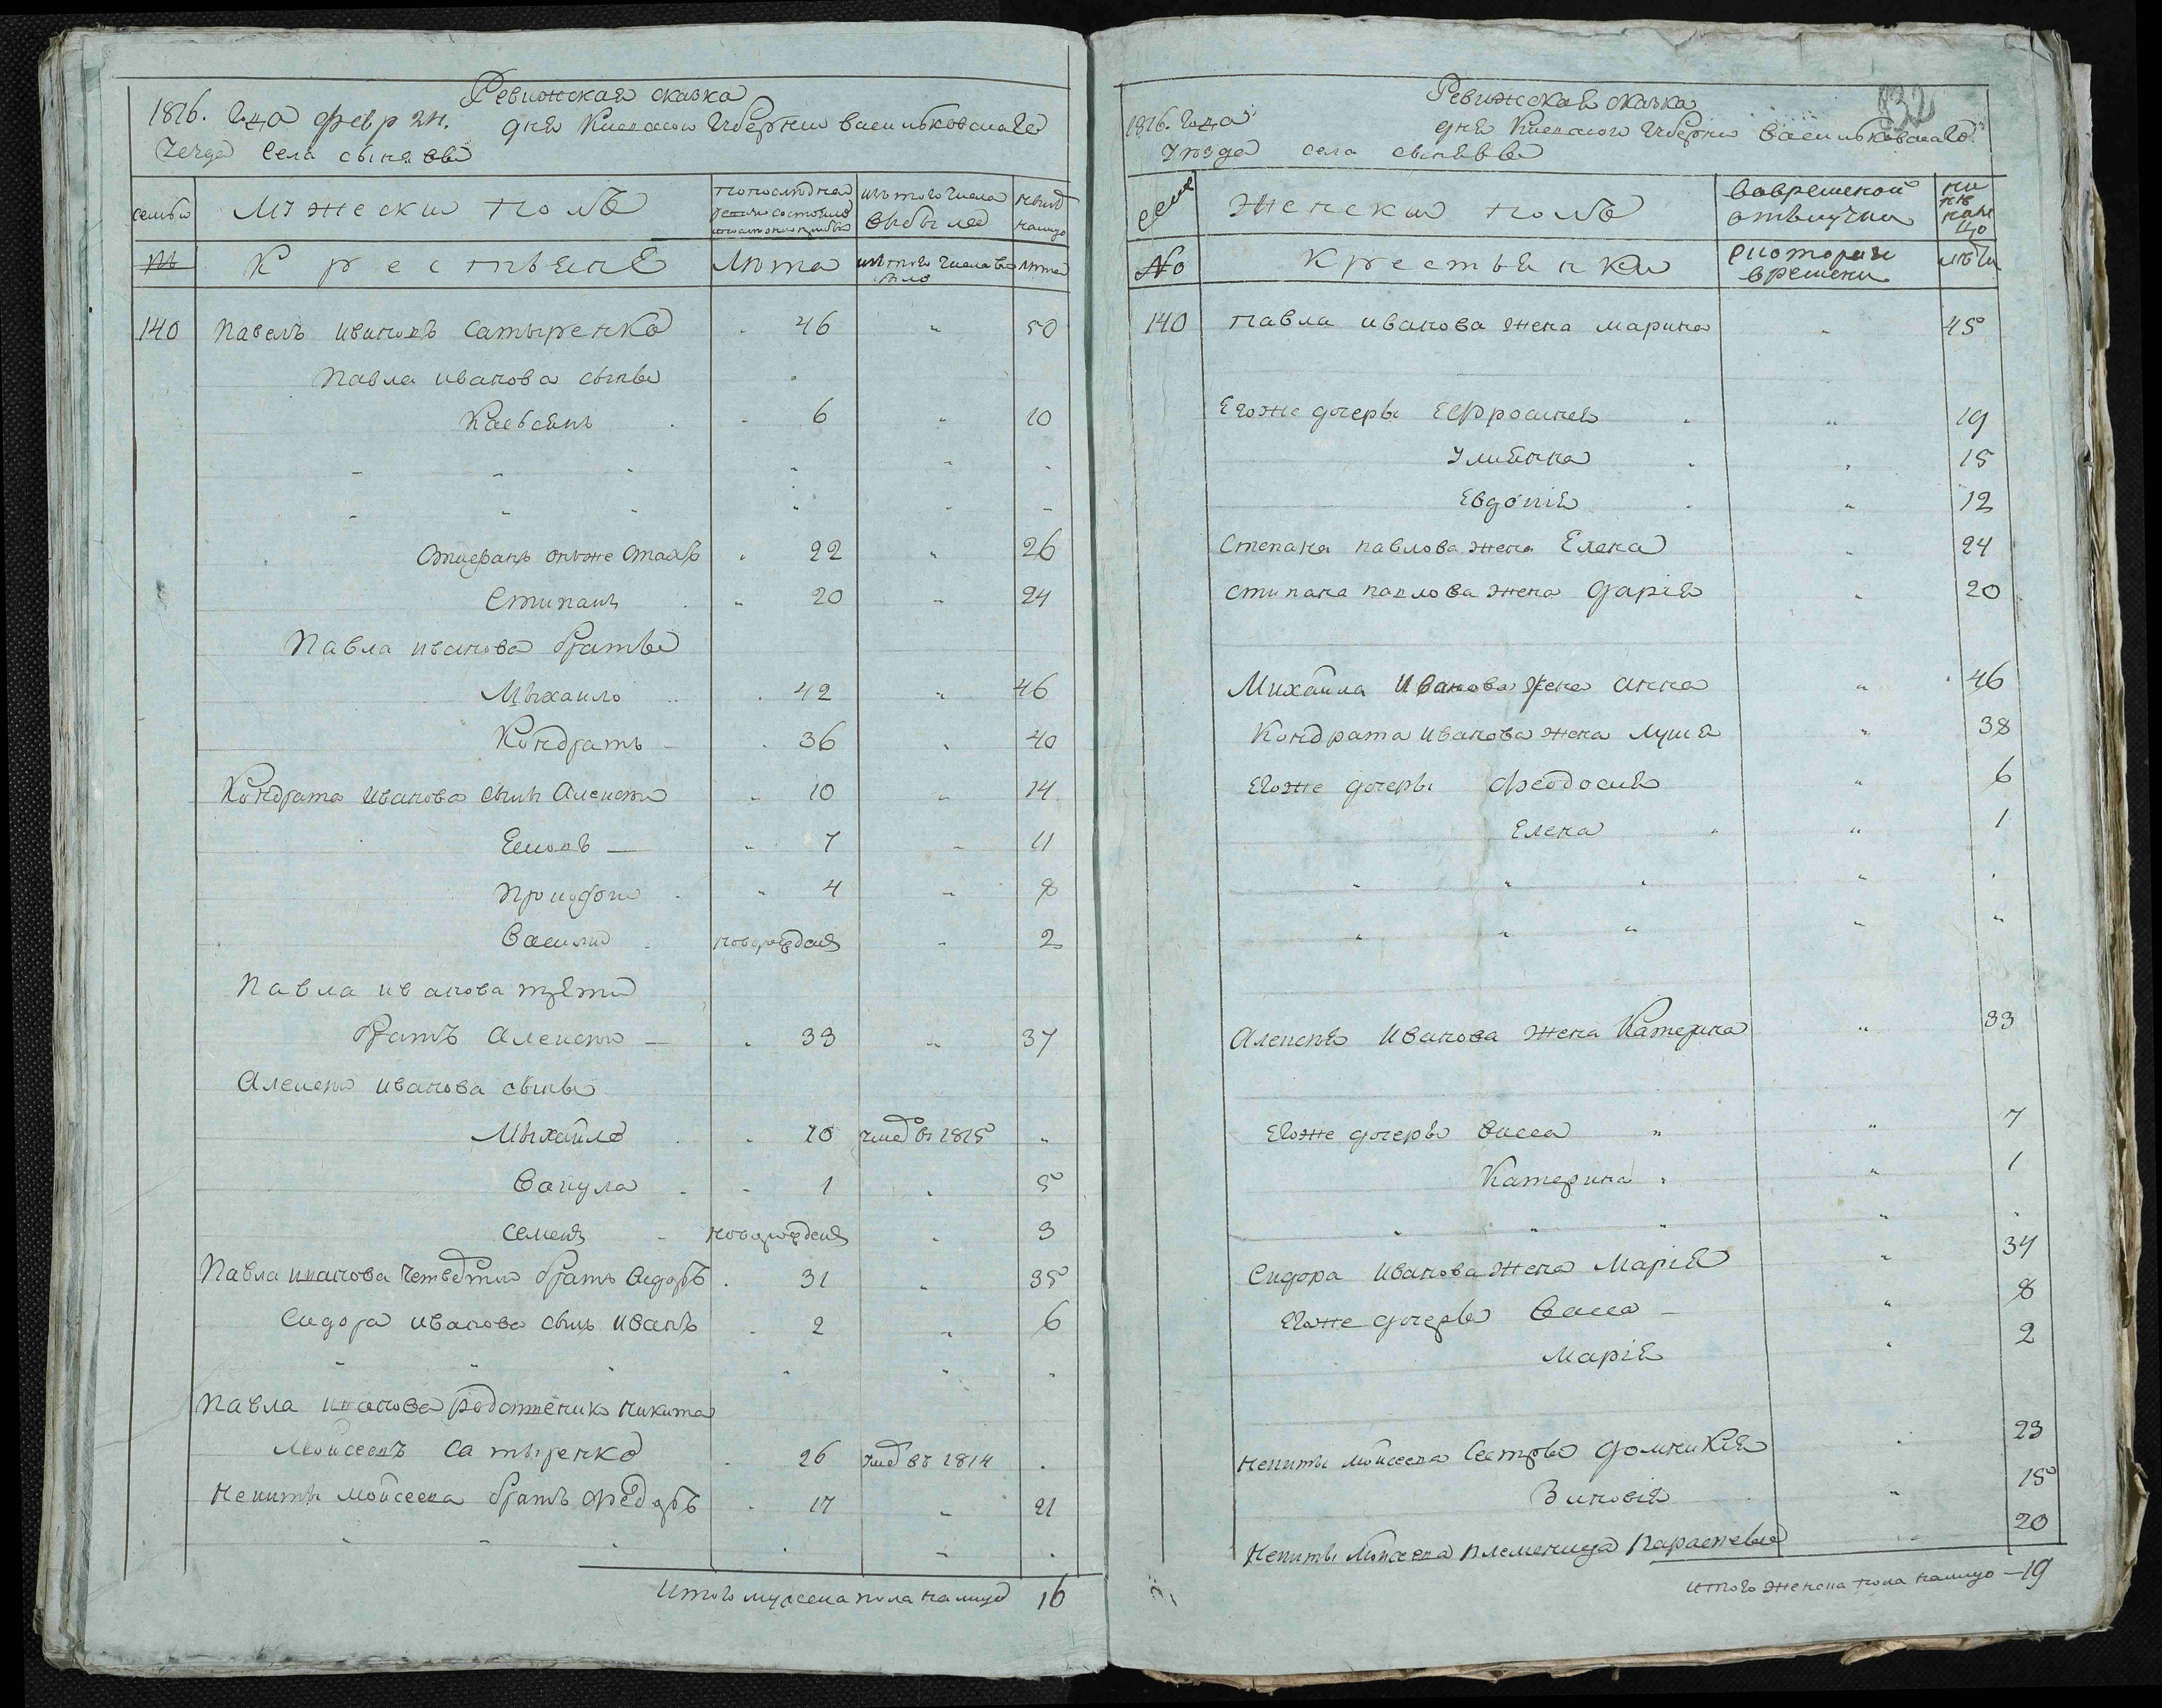 Ревижская сказка
1816. года февр 24. дня Киевской губернии васильковскаго
уезда села сыняввы
семьи
Мужески полъ
по последней ревизии состояло
изъ того числа выбыло
ныне на лицо
№
Крестьяне
Лета
лета
140 Павелъ ивановъ Сатыренко 46 50
Павла иванова сынве
Касьсянъ 6 10
22 26
Стипанъ 20 24
Павла иванова братве
Мыхаило 42 46
Кондратъ 36 40
Кондрата иванова сынъ Алексей 10 14
7 11
Прокофей 4 8
Василий новорожденъ 2
Павла иванова трети
братъ Алексей 33 37
Алексея иванова сынве
Мыхайло 10 умер въ 1815
Вакула 1 5
Семенъ новорожденъ 3
Павла иванова четверти братъ Сидоръ 31 35
Сидора иванова сынъ иванъ 2 6
Павла иванова родственикъ никита
Мойсеевъ Сатыренко 26 умер въ 1814
Некиты мойсеева братъ Федоръ 17 21
Итого мужеска пола на лицо 16
Ревижская сказка
832
1816. года дня Киевской губернии васильковскаго
уезда села сынявве
женски полъ
вовременой отлучки
ныне на лицо
№
Крестьянки
с которого времени
лета
140 Павла иванова жена марина 45
Егоже дочерве Ефросиния 19
Улиянна 15
Евдокия 12
Степана павлова жена Елена 24
стипана павлова жена дария 20
Михайла Иванова жена анна 46
Кондрата иванова жена луция 38
Егоже дочерве феодосия 6
Елена 1
Алексея Иванова жена Катерина 33
Егоже дочерве васса 7
Катерина 1
Сидора иванова жена Мария 34
Егоже дочерве Васса 8
Мария 2
Некиты мойсеева Сестрве домникия 23
Зиновия 15
Некиты Мойсеева племеница Параскевия 20
Итого женска пола на лицо 19